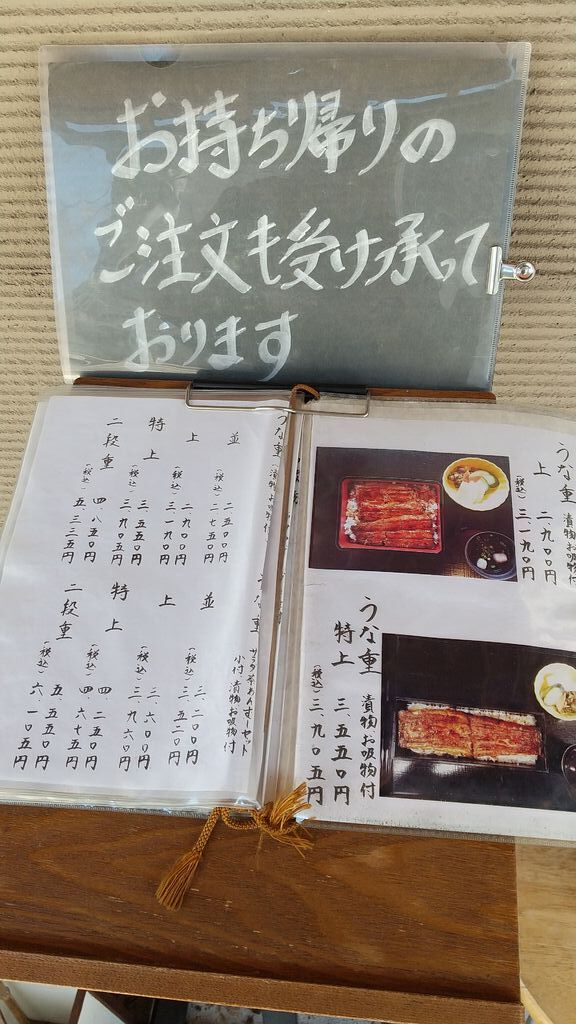 お持ち帰りの
ご注文も受け承って
おります
うな重
上 二、九〇〇円
漬物お吸物付
(税込)三、一九〇円
うな重
特上 三、五五〇円
漬物お吸物付
(税込)三、九〇五円
うな重(漬物お吸物付
並 二、五〇〇円
(税込)二、七五〇円
上 二、九〇〇円
(税込)三、一九〇円
特上 三、五五〇円
(税込)三、九〇五円
二段重 四、八五〇円
(税込)五、三三五円
小付 漬物 お吸物付
並 三、二〇〇円
(税込)三、五二〇円
上 三、六〇〇円
(税込)三、九六〇円
特上 四、二五〇円
(税込)四、六七五円
二段重 五、五五〇円
(税込)六、一〇五円